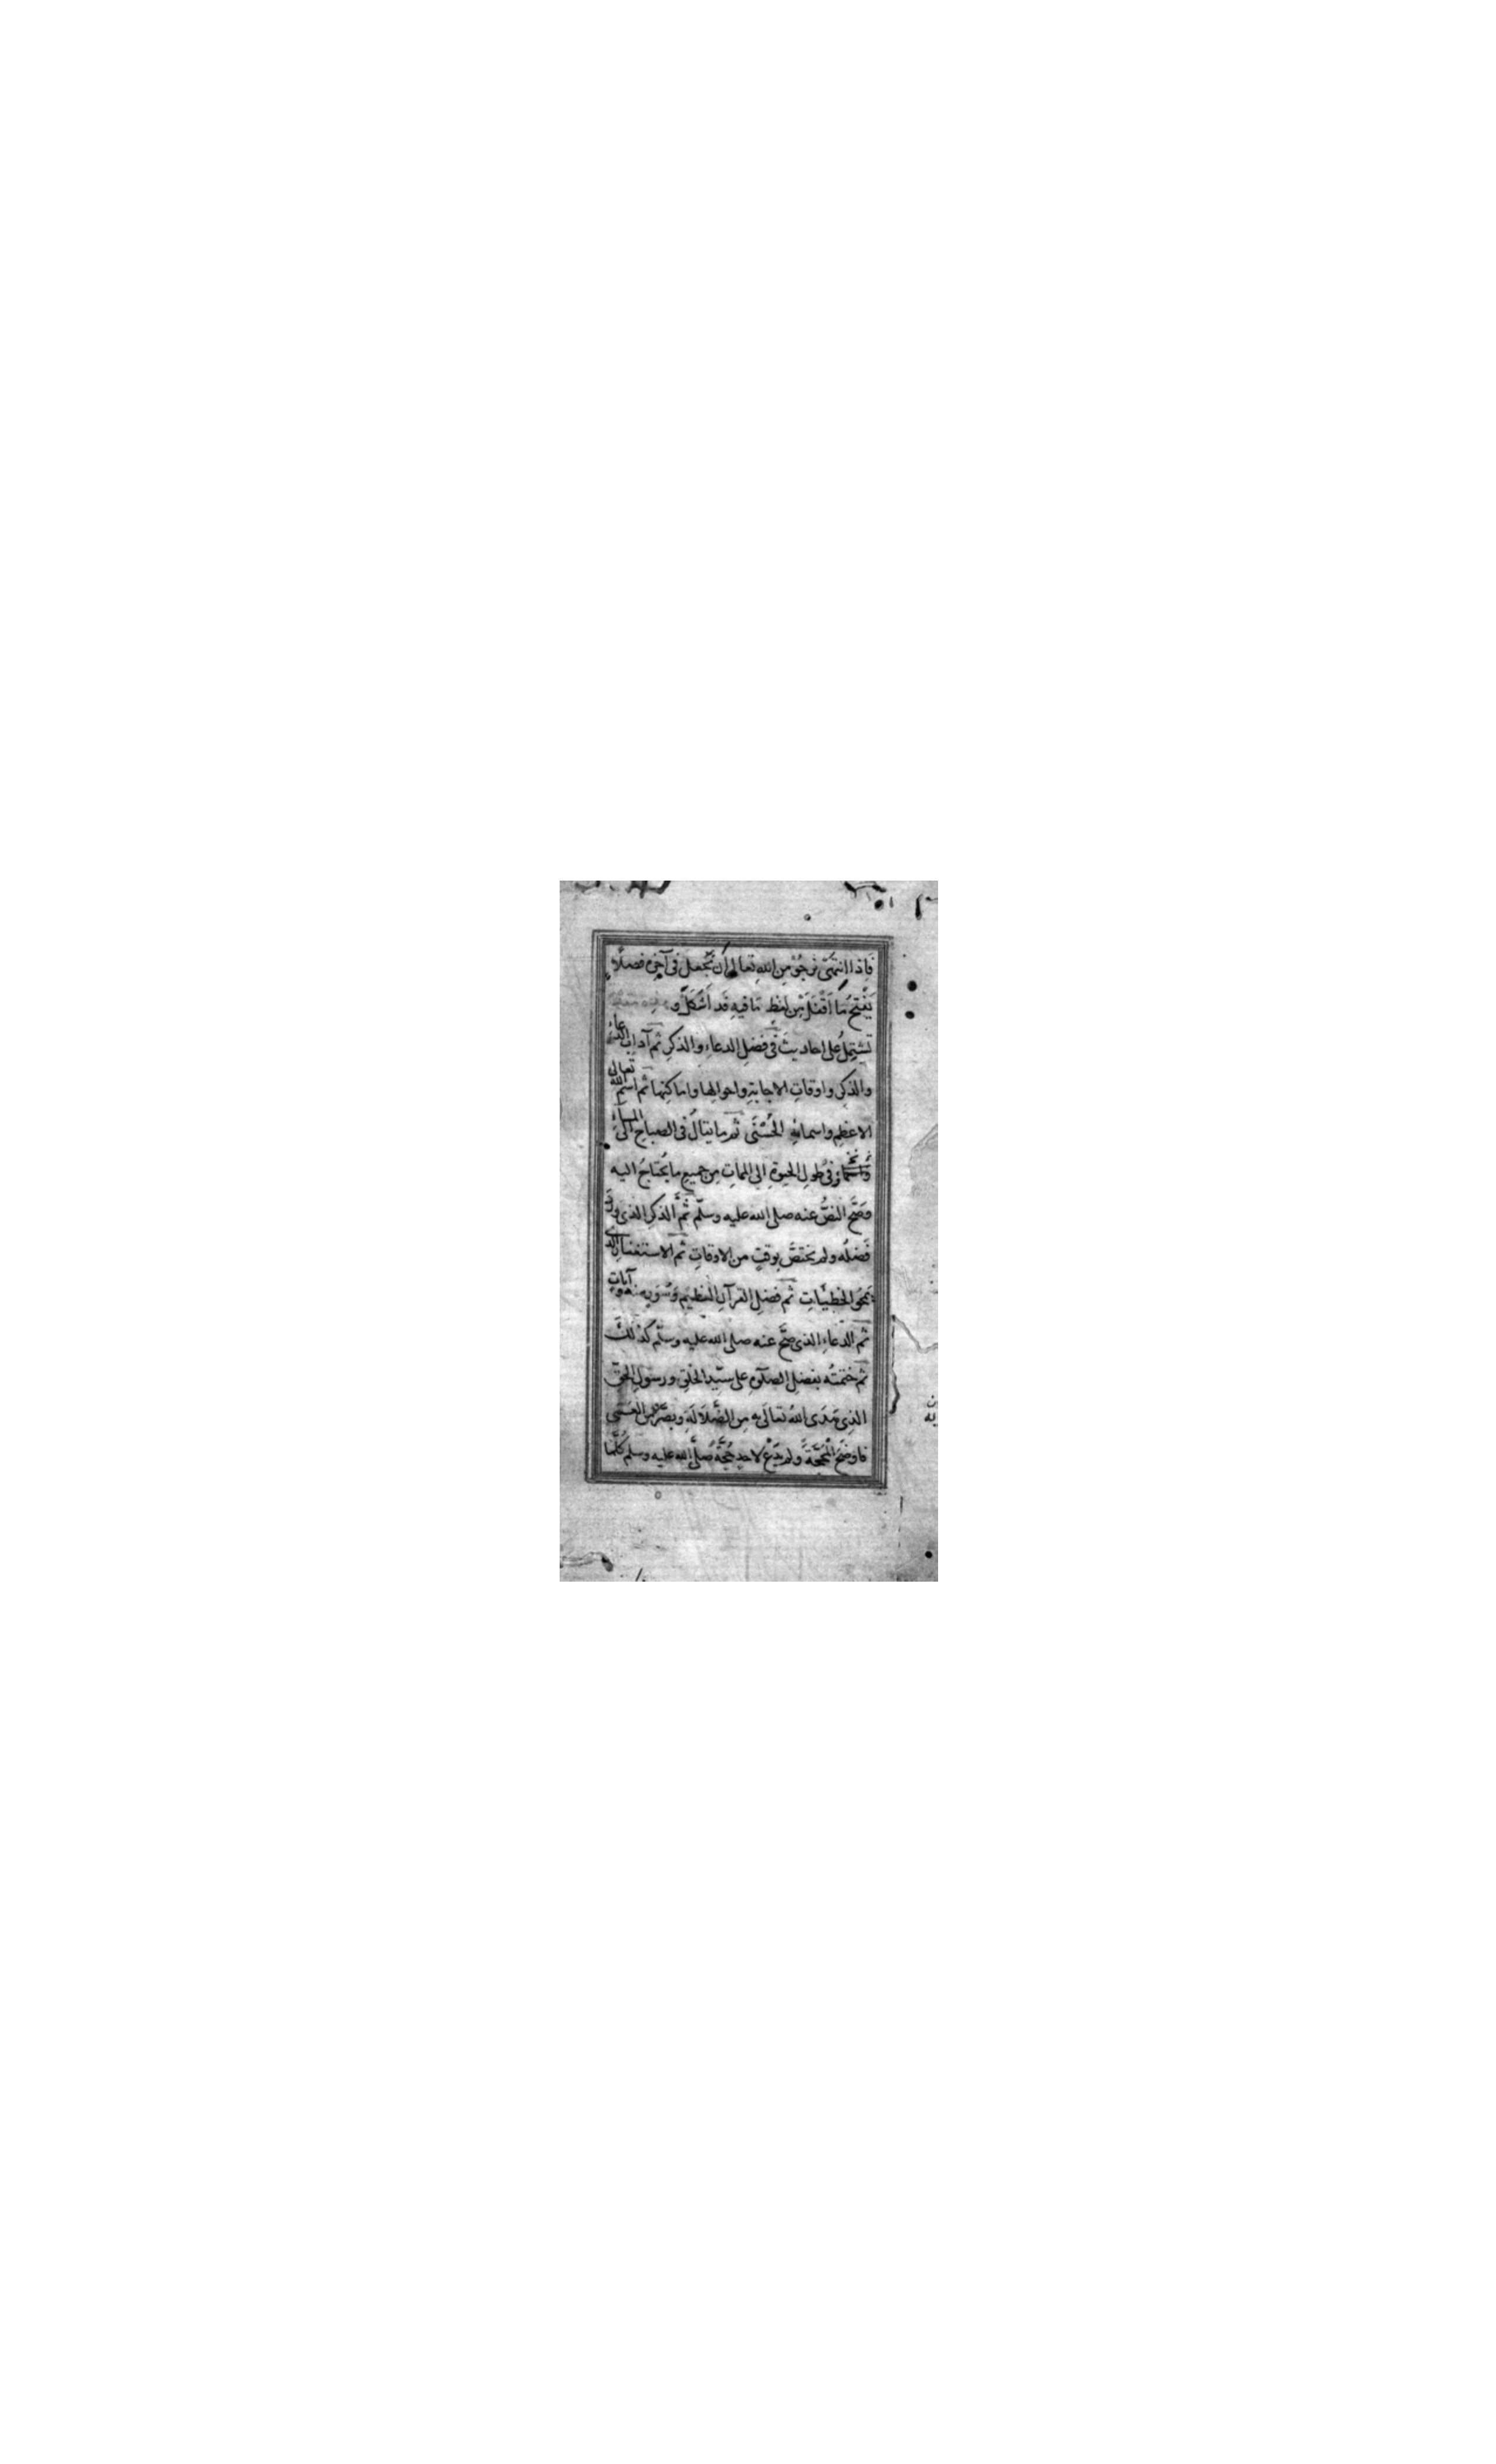 فاذا انتهى نرجو من الله تعالى ان نجعل فى آخره فصلا
يفتح ما اقفل من لفظ ما فيه قد اشكل و
تشتمل على احاديث فى فضل الدعاء والذكر ثم آداب الدعاء
والذكر واوقات الاجابة واحوالها واماكنها ثم اسم الله تعالى
الاعظم واسمائه الحسنى ثم ما يقال فى الصباح المساء
فى طول الحيوة الى الممات من جميع ما يحتاج اليه
وصح النص عنه صلى الله عليه وسلم ثم الذكر الذى ورد
فضله ولم يختص بوقت من الاوقات ثم الاستغفار الذى
يمحو الخطيئات ثم فضل القرآن العظيم وسور منه وآيات
ثم الدعاء الذى صح عنه صلى الله عليه وسلم كذلك
ثم ختمته بفضل الصلوة على سيد الخلق ورسول الحق
الذى هدى الله تعالى به من الضلالة وبصر من العمى
فاوضح المحجة ولم يدع لاحد حجة صلى الله عليه وسلم كلما